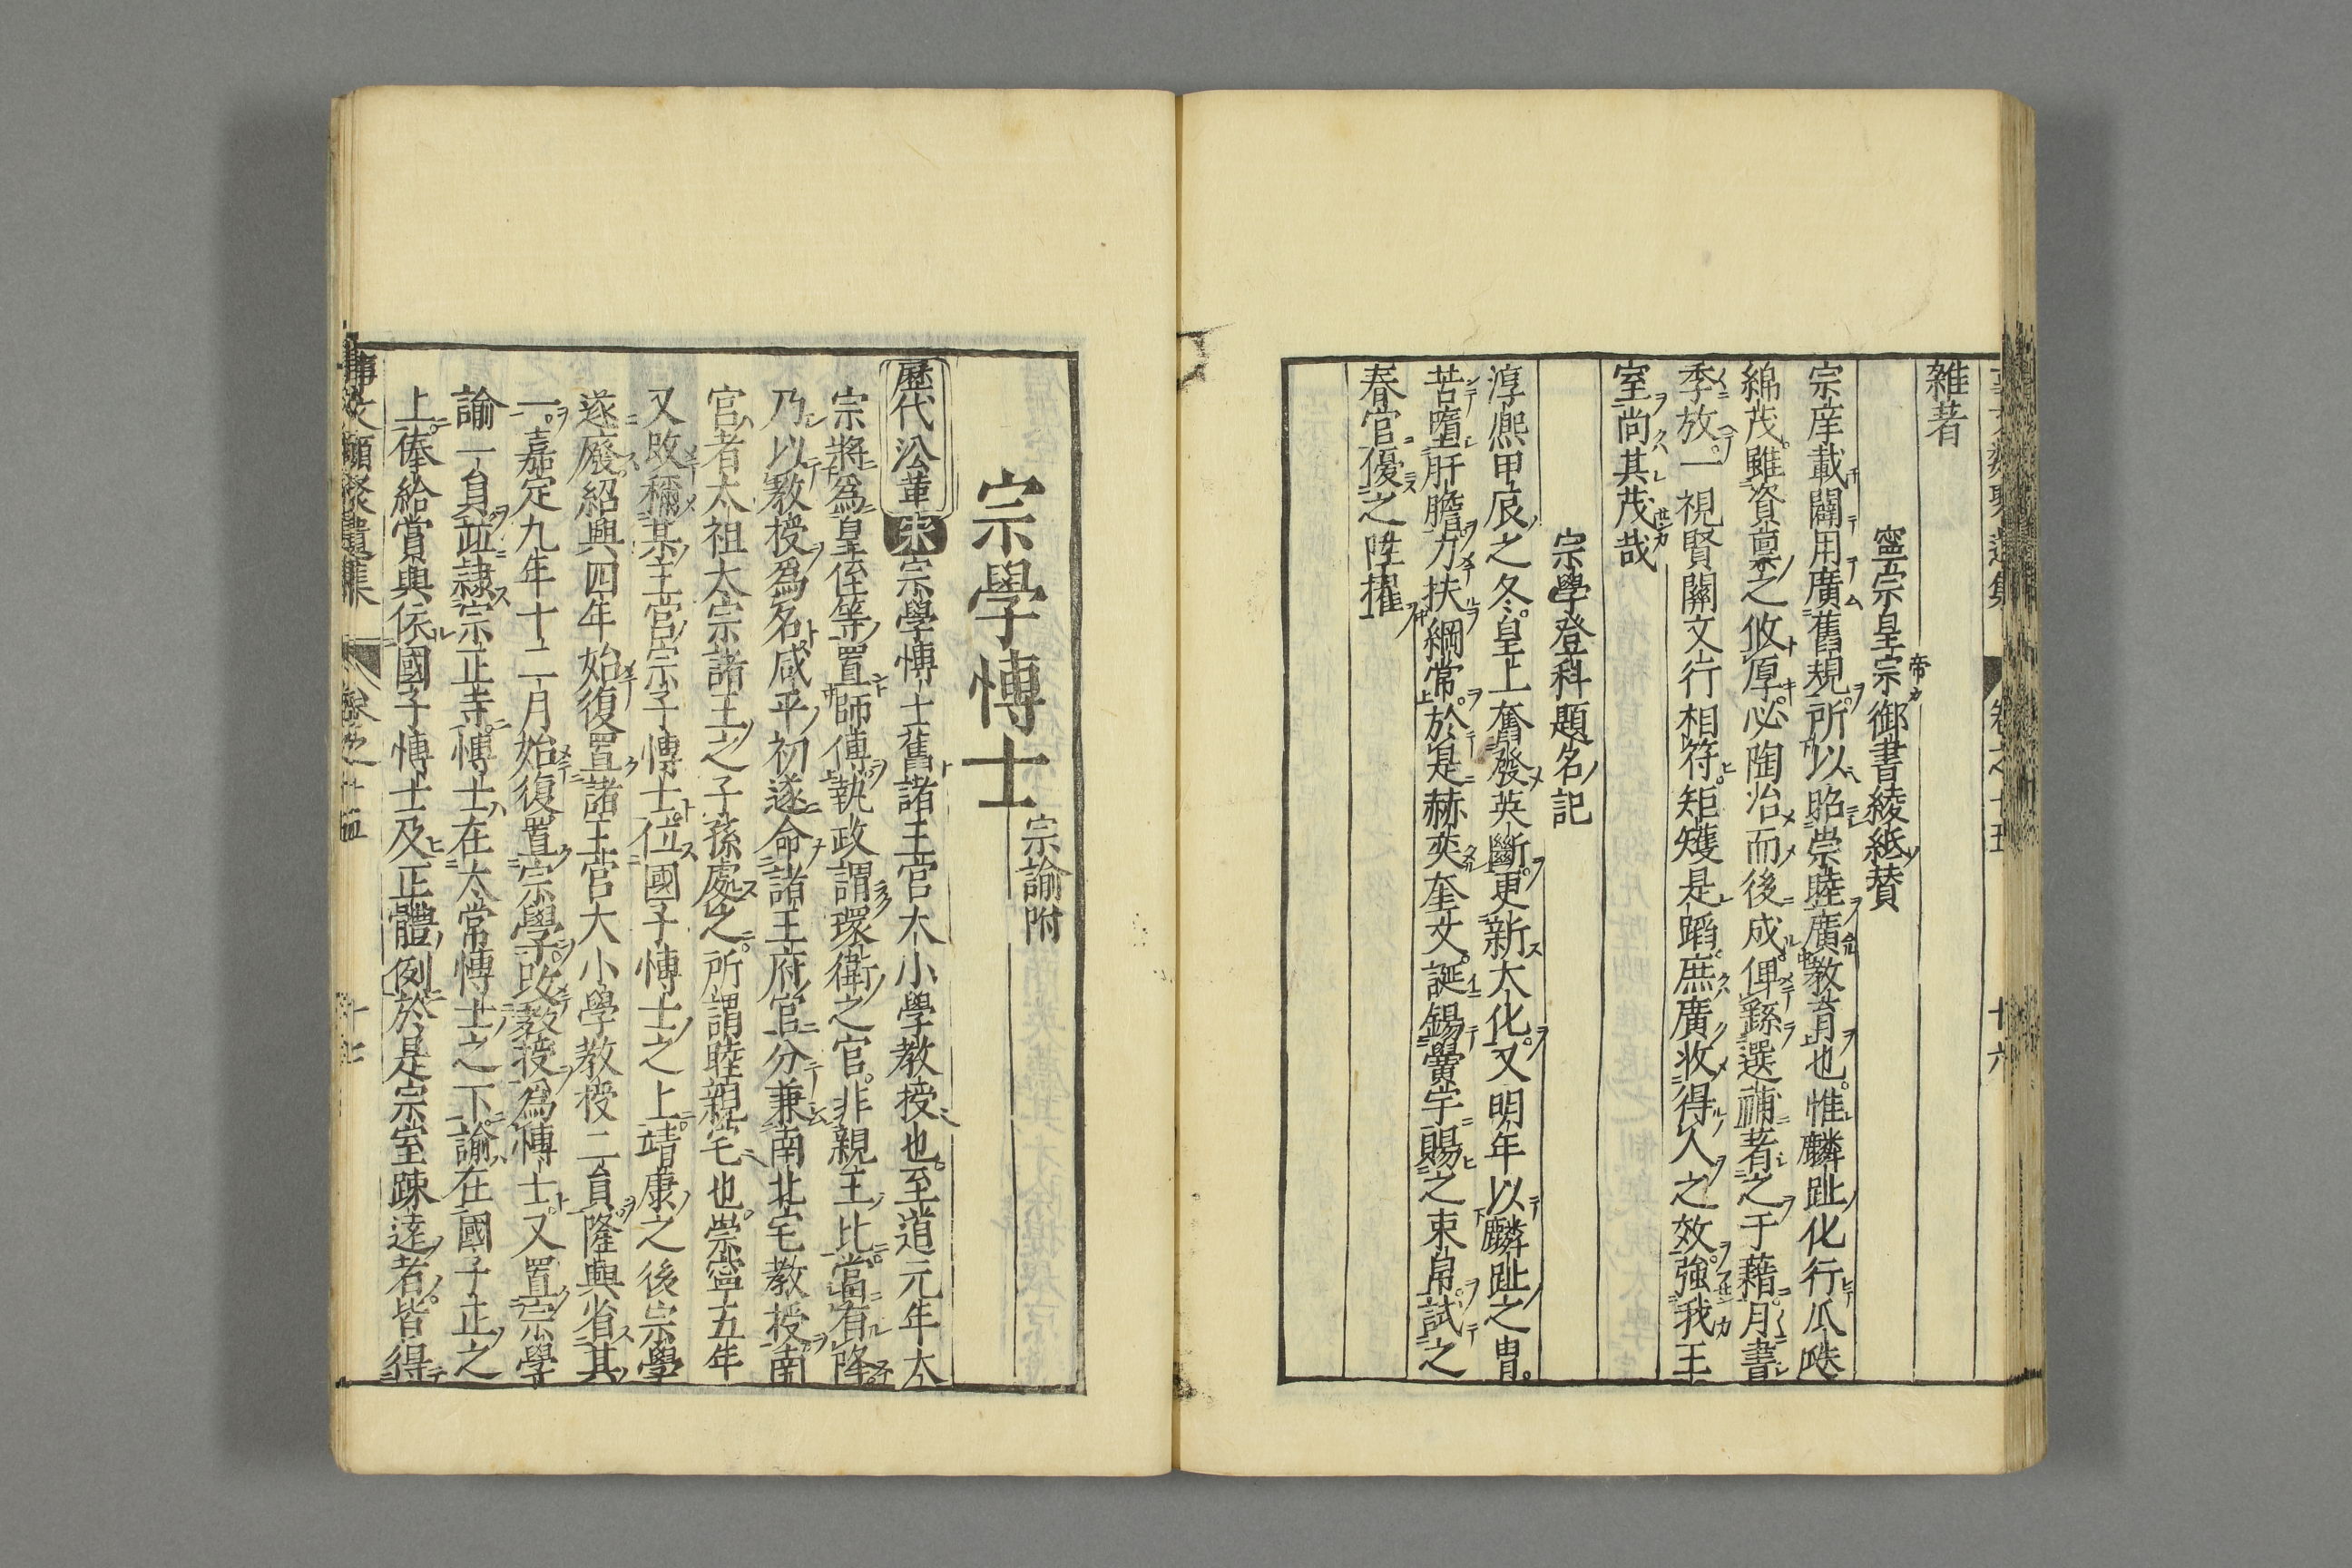 雜著
寧宗皇宗御書綾紙賛
宗庠載闢用廣舊規所以昭崇睦廣教育也惟麟趾化行瓜瓞
綿茂雖資禀之攸厚必陶冶而後成俾繇選補者之于藉月書
季放一視賢關文行相符矩矱是蹈庶廣收得人之效強我王
室尚其茂哉
宗學登科題名記
淳熈甲辰之冬皇上奮發英斷更新大化又明年以麟趾之冑
苦墮肝膽力扶綱常於是赫奕奎文誕錫黌宇賜之束帛試之
春官優之陞擢
宗學博士 宗諭附
歷代沿革 宋 宗學博士舊諸王宮大小學教授也至道元年太
宗將爲皇侄等置師傅執政謂環衛之官非親王比當有降
乃以敎授爲名咸平初遂命諸王府官分兼南北宅教授南
宮者太祖太宗諸王之子孫處之所謂睦親宅也崇寧五年
又改稱某王宮宗子博士位國子博士之上靖康之後宗學
遂廢紹興四年始復置諸王宮大小學教授二員隆興省其
一嘉定九年十二月始復置宗學改敎授爲博士又置宗學
諭一員並隷宗正寺博士在太常博士之下諭在國子正之
上俸給賞典依國子博士及正體例於是宗室疎逺者皆得
事文類聚遺集 卷之十五 十七